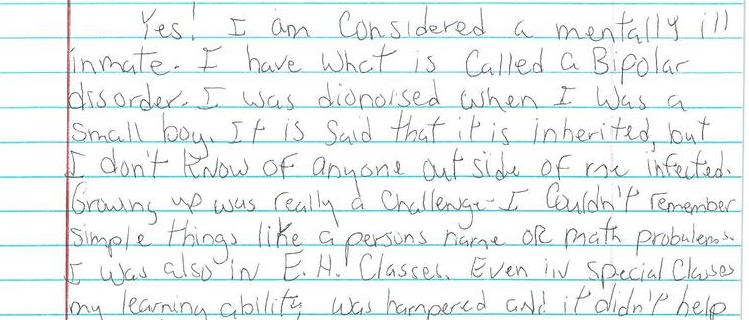 Yes! I am Considered a mentally ill
inmate. I have what is Called a Bipolar
dissorder. I was dionoised when I was a
small boy. It is Said that it is inherited, but
I don't know of anyone out side of me infected.
Growing up was really a Challenge - I Couldn't remember
simple things like a persons name OR math probulems.
I was also in E.H. Classes. Even in special Classes
my learning ability was hampered and it didn't help